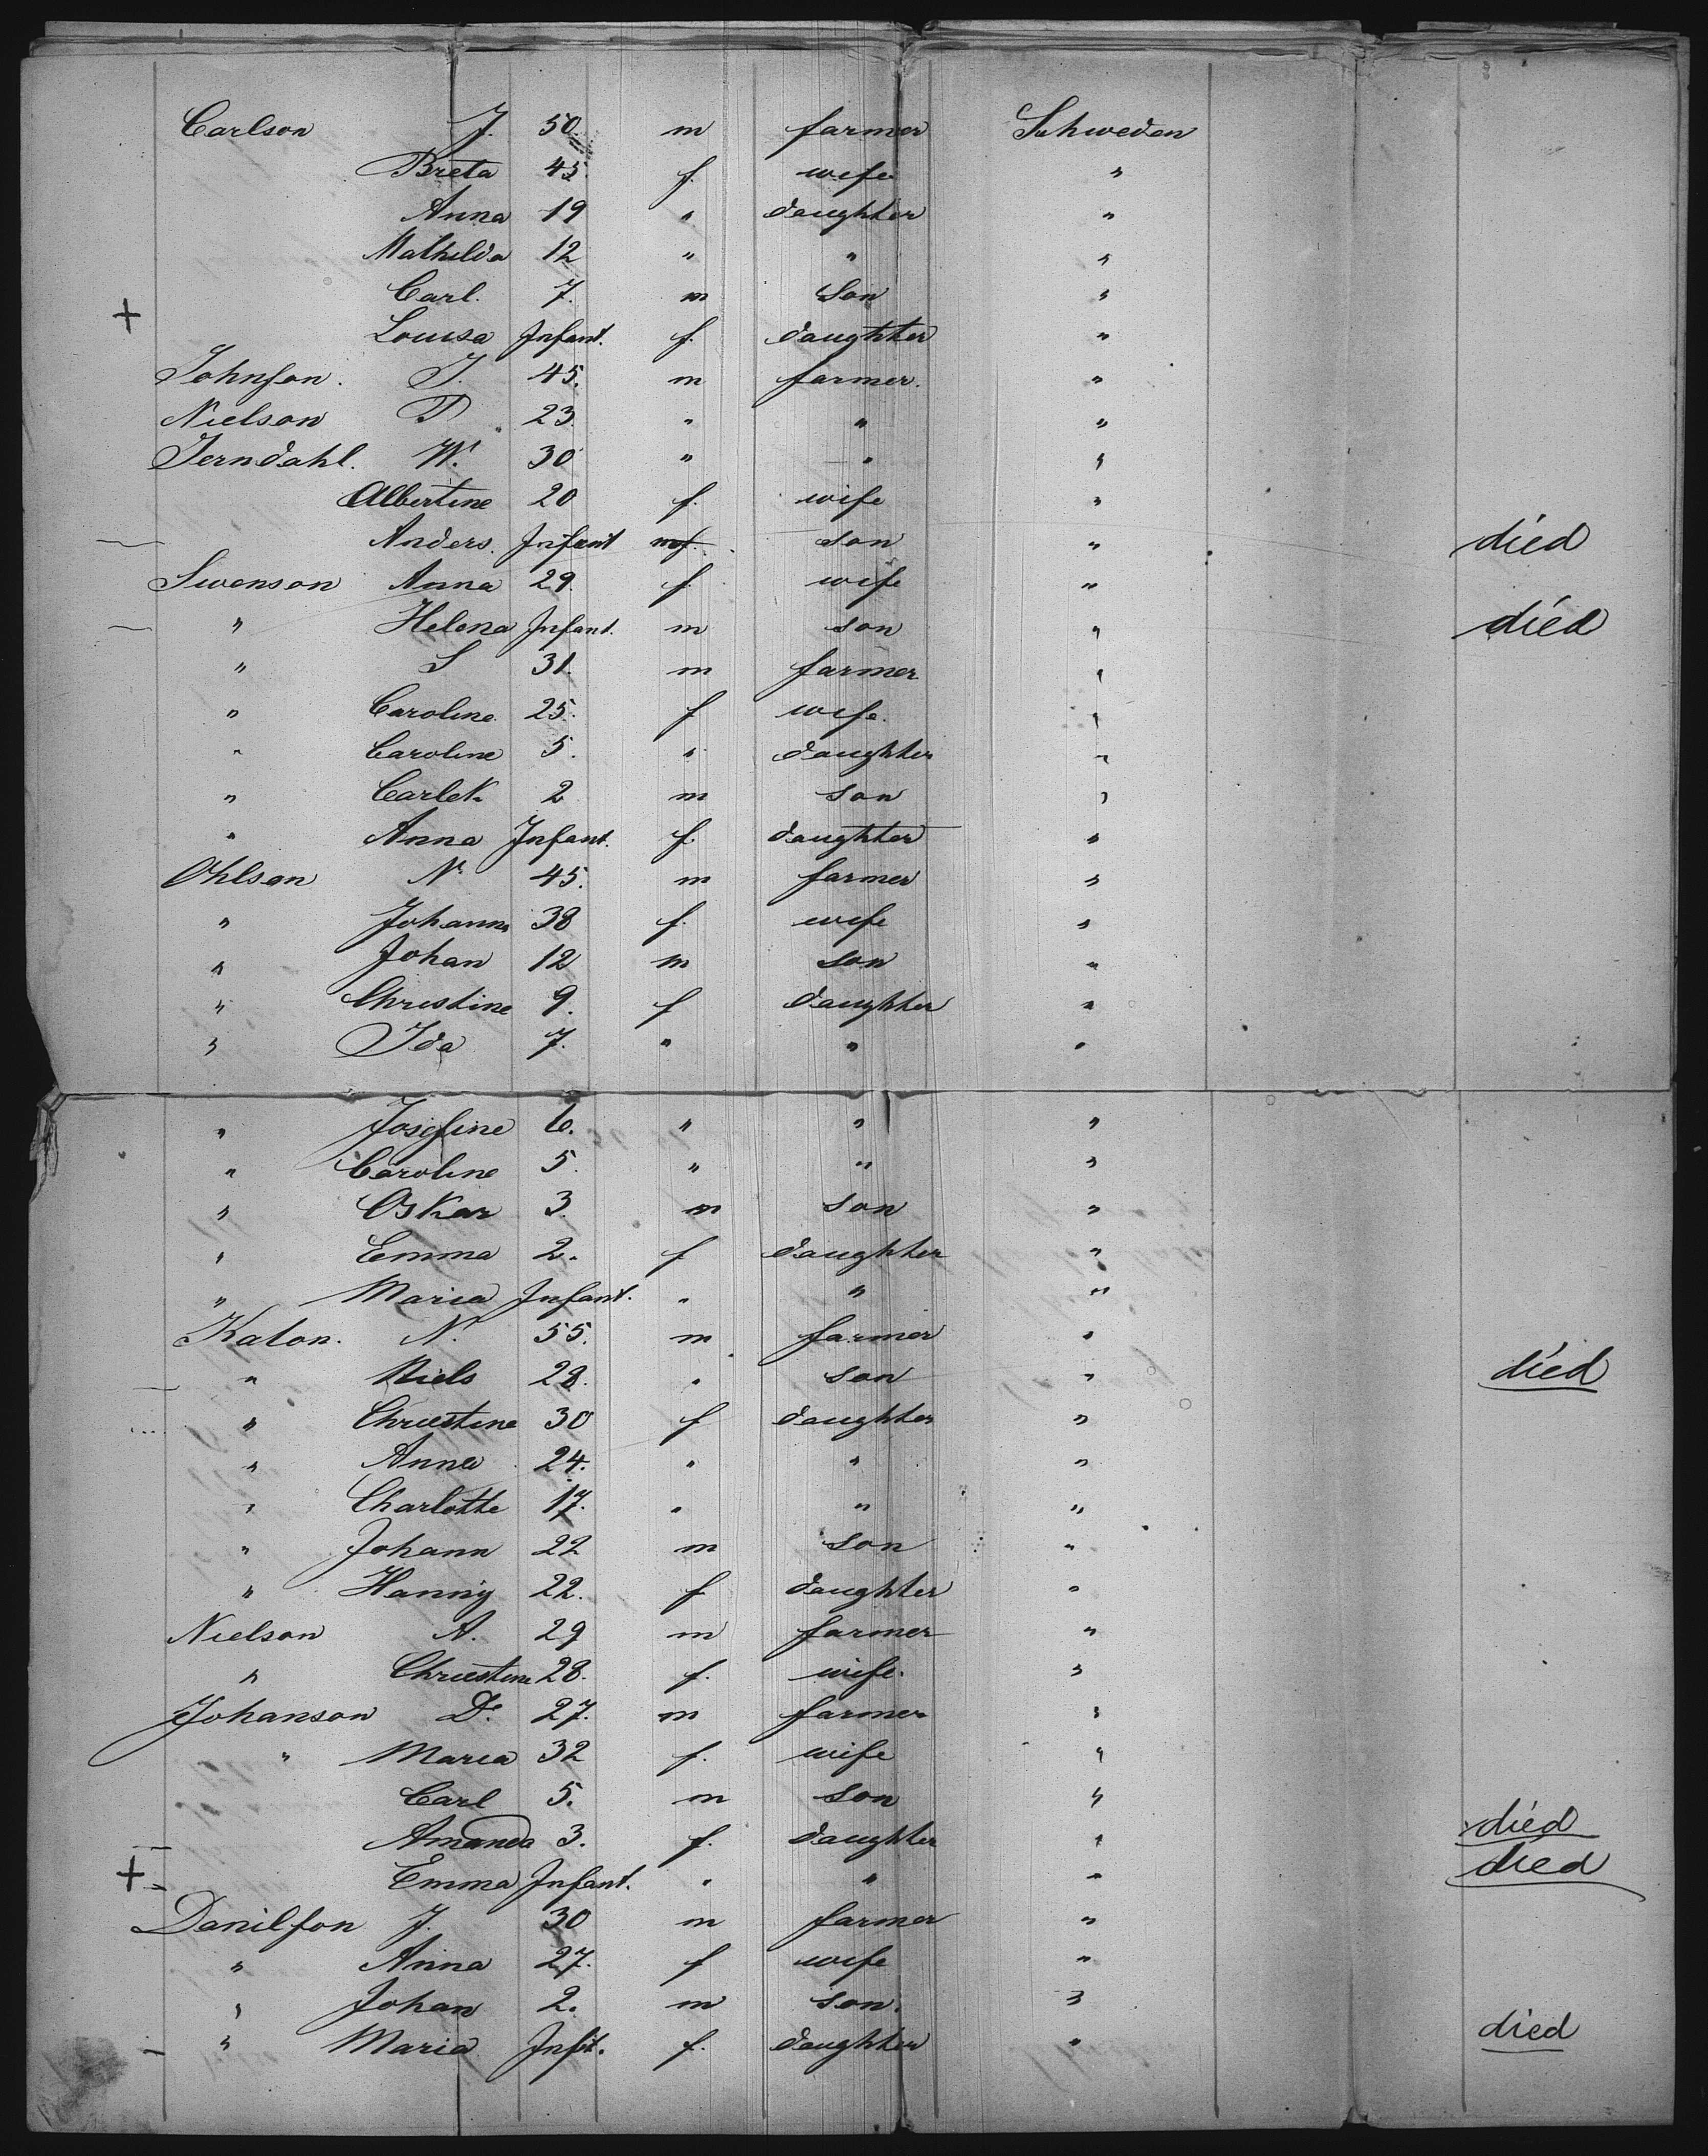 Carlson J. 50. m farmer Schweden
Breta 45. f. wife "
Anna 19 " daughter "
Mathilda 12 " " "
Carl. 7. m Son "
+ Louisa Infant. f. daughter "
Johnson. J. 45. m farmer. "
Nielson P. 23. " " "
Jerndahl. W. 30 " " "
Albertine 20 f. wife "
Anders. Infant son " died
Swenson Anna 29. f. wife "
" Helena Infant. m son " died
" S 31. m farmer "
" Caroline 25. f wife. "
" Caroline 5. " daughter "
" Carl K. 2 m son "
" Anna Infant. f. daughter "
Ohlson N. 45. m farmer "
" Johanna 38 f. wife "
" Johan 12 m son "
" Christine 9. f daughter "
" Ida 7. " " "
" Josefine 6. " " "
" Caroline 5. " " "
" Oskar 3. m son "
" Emma 2. f daughter "
" Maria Infant. " " "
Katon. N. 55. m farmer "
" Niels 28. " son " died
" Christine 30 f daughter "
" Anna 24. " " "
" Charlotte 17. " " "
" Johann 22 m son "
" Hanny 22. f daughter "
Nielson A. 29 m farmer "
" Christine 28. f. wife. "
Johanson D. 27. m farmer "
" Maria 32 f. wife "
Carl 5. m son "
Amanda 3. f. daughter " died
+ Emma Infant. " " " died
Danilson J. 30 m farmer "
" Anna 27. f wife "
" Johan 2. m son. "
" Maria Inft. f. daughter " died